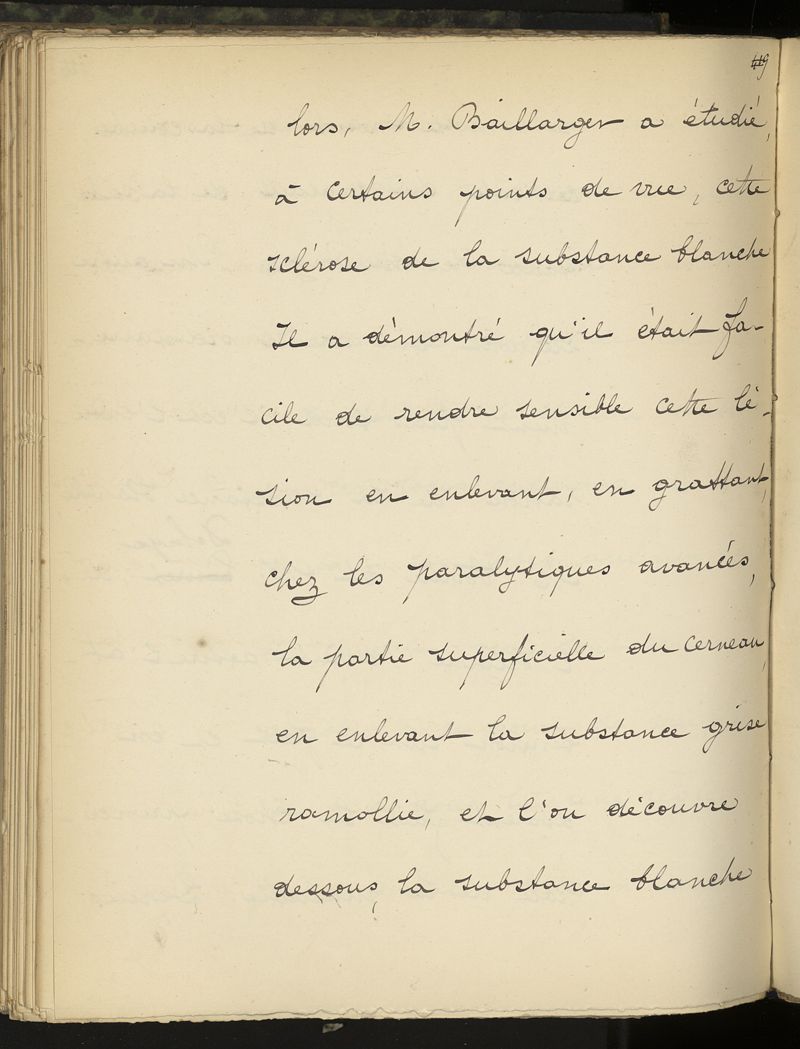 lors, M. Baillarger a étudié,
à certains points de vue, cette
sclérose de la substance blanche
Il a démontré qu'il était fa-
cile de rendre sensible cette lé-
sion en enlevant, en grattant,
chez les paralytiques avancés,
la partie superficielle du cerveau,
en enlevant la substance grise
ramollie, et l'on découvre
dessous, la substance blanche